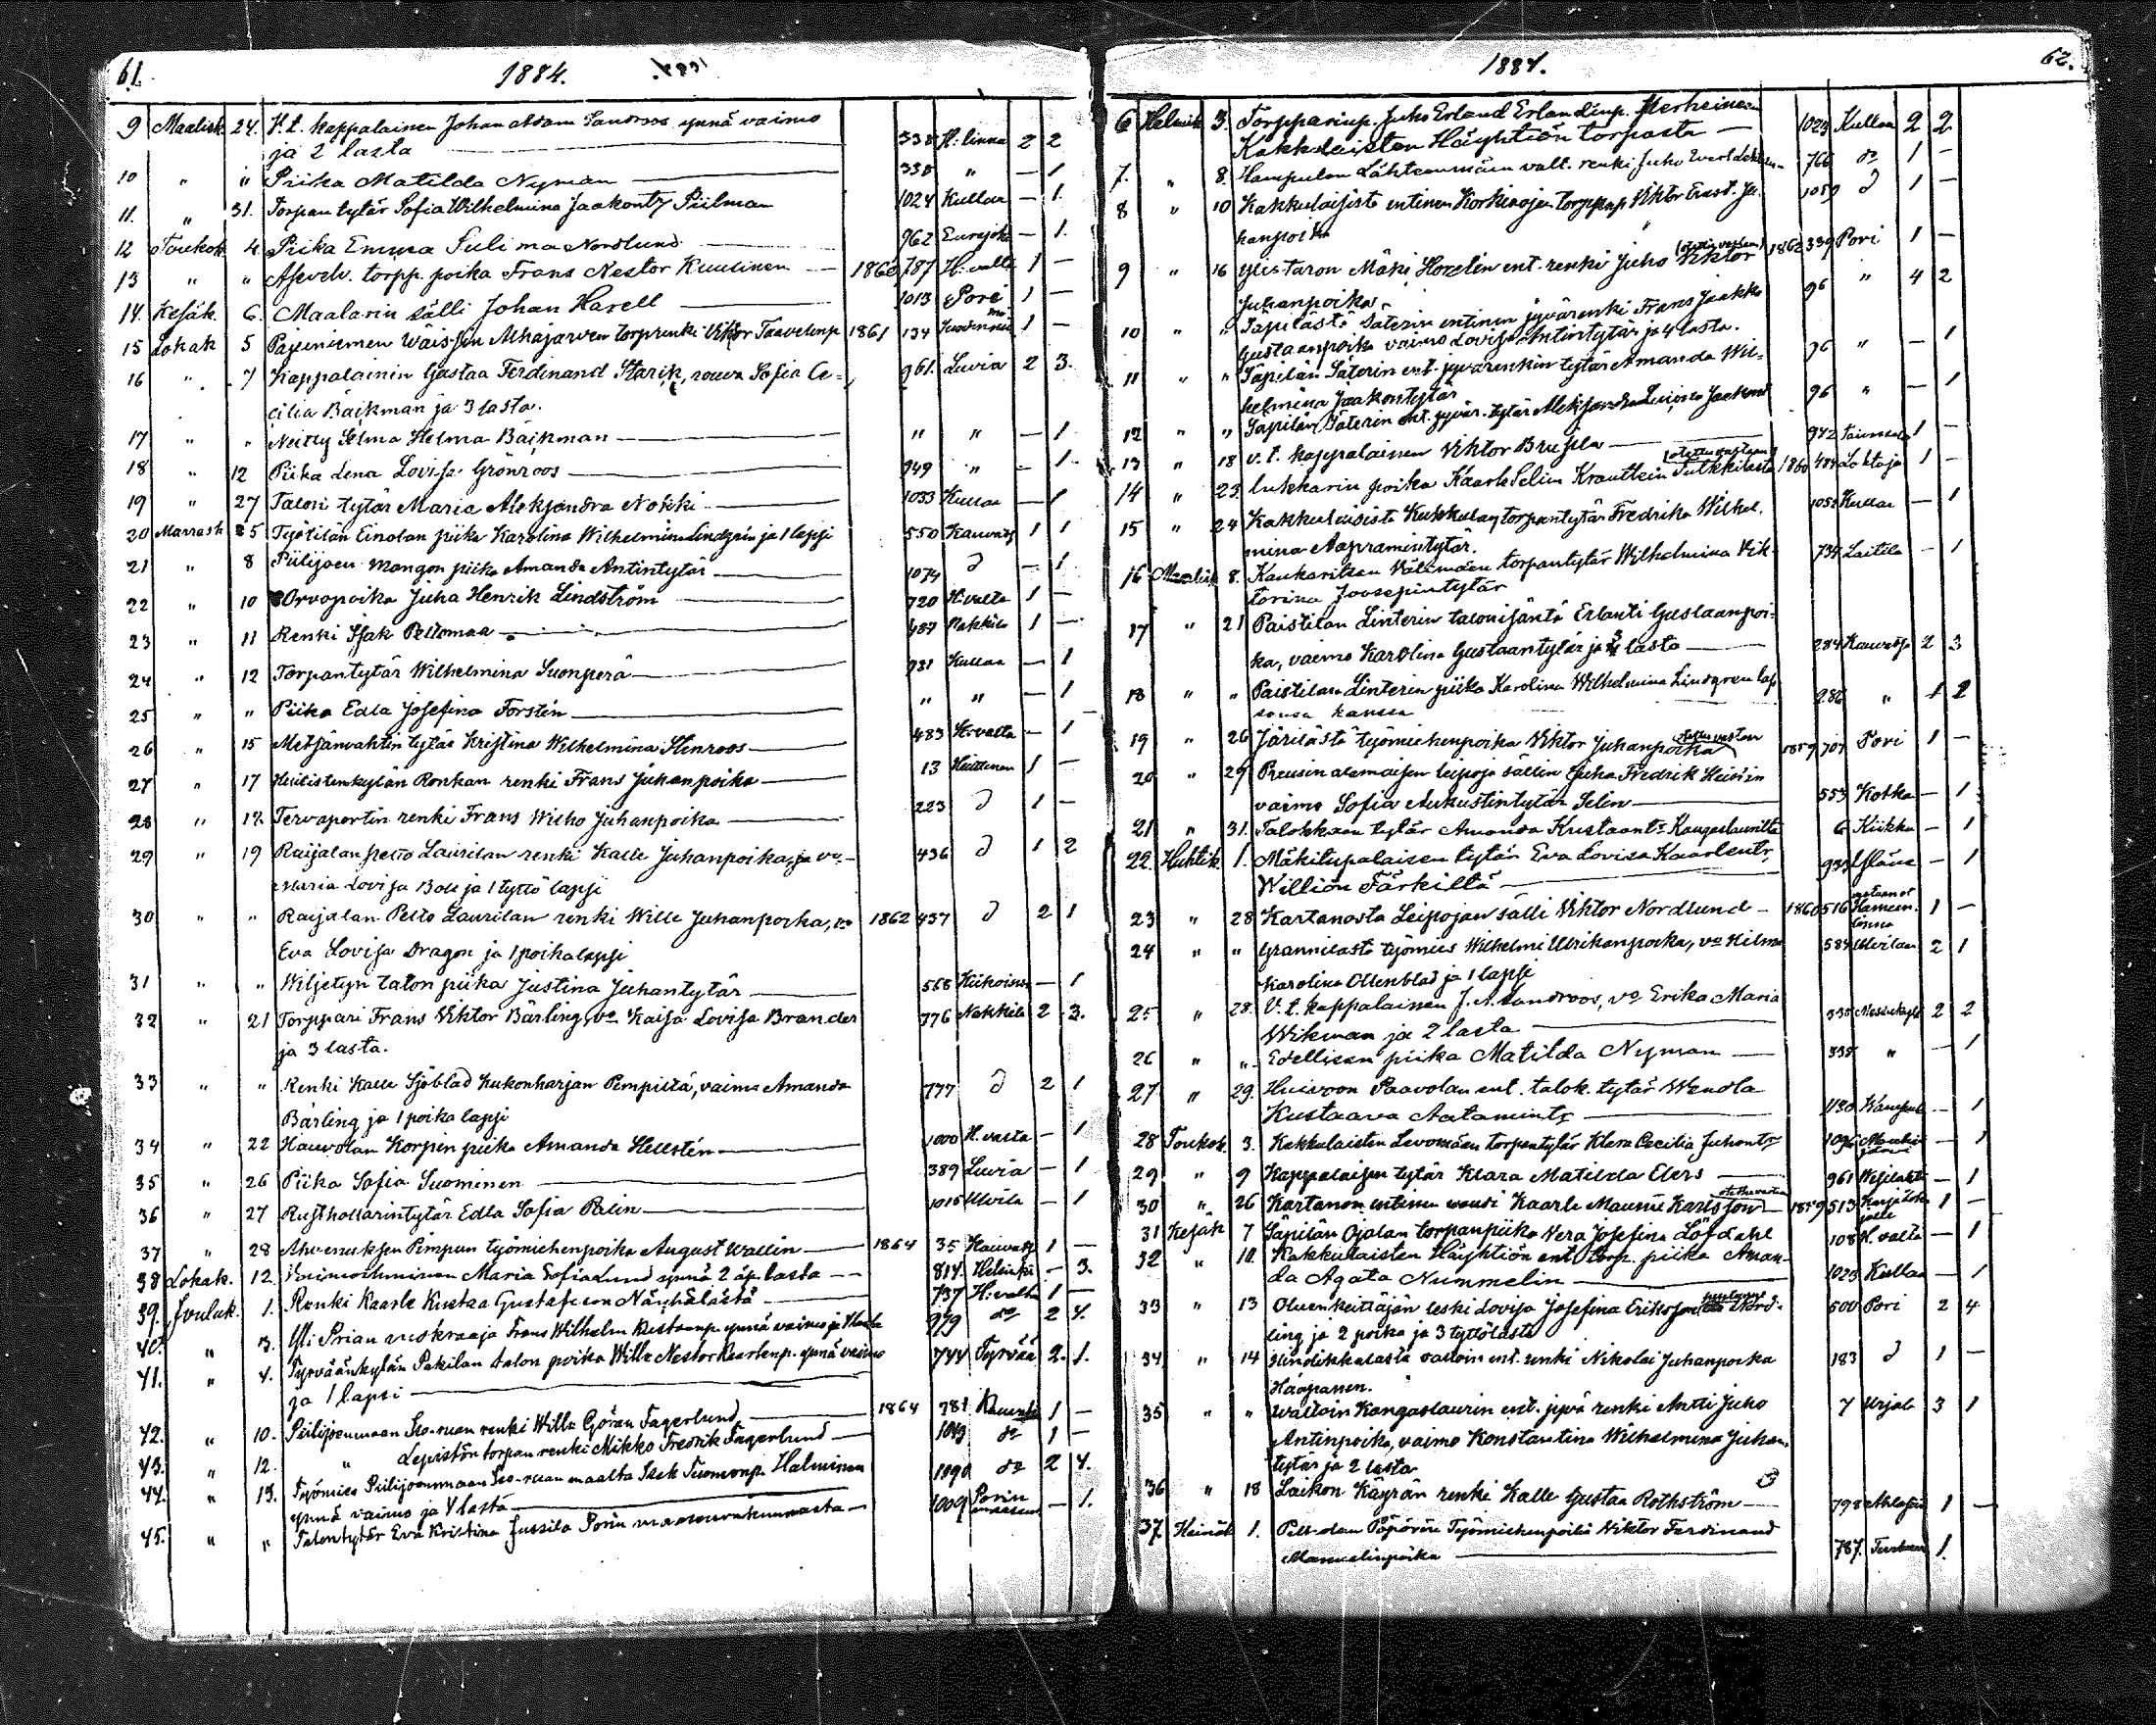 61. 1884.
9 Maalisk 24. V. t. kappalainen Johan Adam Sandroos ynnä vaimo
ja 2 lasta 338 H:linna 2 2
10 " " Piika Matilda Nyman 338 " — 1
11. " 31. Torpan tytär Sofia Wilhelmina Jaakontr Piilman 1024 Kullaa — 1.
12 Toukok 4. Piika Emma Nordlund 962 Eurajoki — 1.
13 " " torpp. poika Frans Nestor Kuusinen 1860 787 H:valta 1 —
14. Kesäk. 6. Maalarin sälli Johan Harell 1013 Pori 1 —
15 Lokak 5 torp. renki Viktor Taavetinp 1861 134 1 —
16 " 7 Kappalainen Gustaa Ferdinand Starik, rouva Sofia Ce- 961. Luvia 2 3.
cilia Bäckman ja 3 lasta.
17 " " Neitsy Selma Helma Bäckman " " — 1
18 " 12 Piika Lena Lovisa Grönroos 949 " — 1.
19 " 27 Talon tytär Maria Aleksandra Nokki 1033 Kullaa — 1
20 Marrask 5 Työtilän Einolan piika Karolina Wilhelmina Lindgrén ja 1 lapsi 550 Kauvatsa 1 1
21 " 8 Piilijoen Mangon piika Amanda Antintytär 1074 d — 1
22 " 10 Orvopoika Juha Henrik Lindström 720 H:valta 1 —
23 " 11 Renki Isak Peltomaa 487 Nakkila 1 —
24 " 12 Torpantytär Wilhelmina Suonperä 931 Kullaa — 1
25 " " Piika Edla Josefina Forstén " " — 1
26 " 15 Metsänvahtin tytär Kristina Wilhelmina Stenroos 483 H:valta — 1
27 " 17 Huilistenkylän Ronkan renki Frans Juhanpoika 13 Huittinen 1 —
28 " 17. Tervaportin renki Frans Wilho Juhanpoika 223 d 1 —
29 " 19 Raijalan pelto Laurilan renki Kalle Juhanpoika, ja vo. 436 d 1 2
Maria Lovisa Boli ja 1 tyttö lapsi
30 " " Raijalan Pelto Laurilan renki Wille Juhanpoika, vo 1862 437 d 2 1
Eva Lovisa Dragon ja 1 poikalapsi
31 " " Wiljetyn talon piika Justina Juhantytär 568 Kiikoinen — 1
32 " 21 Torppari Frans Viktor Bärling, vo Kaisa Lovisa Brander 776 Nakkila 2 3.
ja 3 lasta.
33 " " Renki Kalle Sjöblad Kukonharjan Pempistä, vaimo Amanda 777 d 2 1
Bärling ja 1 poika lapsi
34 " 22 Hauvolan Korpin piika Amanda Hellstén 1000 H.valta — 1
35 " 26 Piika Sofia Suominen 389 Luvia — 1
36 " 27 Rusthollarintytär Edla Sofia Palin 1015 Ulvila — 1
37 " 28 Ahvenuksen Pimpun työmiehenpoika August Wallin 1864 35 Kauvatsa 1 —
38 Lokak. 12. Vaimoihminen Maria Sofia Lund ynnä 2 äp. lasta 814. Helsinki — 3.
39. Jouluk. 1. Renki Kaarle Kustaa Gustafsson 737 H:valta 1 —
40. " 3. Yli Prian Frans Wilhelm Kustaanp. ynnä vaimo ja 979 do 2 4.
41. " 4. Tyrväänkylän Pakilan talon poika Wille Nestor Kaarlenp. ynnä vaimo 744 Tyrvää 2. 1.
ja 1 lapsi
42. " 10. Piilijoenmaan renki Wille Göran Fagerlund 1864 781 1 —
43. " 12. " Lepistön torpan renki Mikko Fredrik Fagerlund 1043 do 1 —
44. " 13. Työmies Piilijoenmaan maalta Isak Tuomonp. Halminen 1090 do 2 4.
ynnä vaimo ja 4 lasta
45. " " Talontytär Eva Kristina Jussila Porin maaseurakunnasta 1009 Porin maaseur — 1.
1884. 62.
6 Helmik 3. Torpparinp. Juho Erland Erlandinp.
Kakkulaisten Häyhtiön torpasta 1023 Kullaa 2 2
7. " 8. Lähteenmäen valt. renki Juho 766 do 1 —
8 " 10 Kakkulaisista entinen Korkinojan torppap Viktor Ernst. Ju- 1059 d 1 —
hanpoika
9 " 16 Ylistaron Mäki Hoxelin ent. renki Juho Viktor 1862 339 Pori 1 —
Juhanpoika
10 " " Säpilästä Säterin entinen jyvärenki Frans Jaakko 96 " 4 2
Gustaanpoika vaimo Lovisa Antintytär ja 4 lasta.
11 " " Säpilän Säterin ent. jyvärenkin tytär Amanda Wil- 96 " — 1
helmina Jaakontytär
12 " " Säpilän Säterin ent. jyvär. tytär Aleksandra Lovisa Jaakont 96 " — 1
13 " 18 v. t. kappalainen Viktor Brusila 942 1 —
14 " 23. Lukkarin poika Kaarle Selim Krautlein Tulkkilasta 1860 484 Lohtaja 1 —
15 " 24 Kakkulaisista Kukkulan torpantytär Fredrika Wilhel- 1052 Kullaa — 1
mina Aapramintytär.
16 Maalisk 8. Kaukaritsan Välimäen torpantytär Wilhelmina Vik- 734 Laitila — 1
torina Joosepintytär
17 " 21 Paistilan Linterin talonisäntä Erlanti Gustaanpoi-
ka, vaimo Karolina Gustaantytär ja 3 lasta 284 Kauvatsa 2 3
18 " " Paistilan Linterin piika Karolina Wilhelmina Lindgren lap- 286 " 1 2
sensa kanssa
19 " 26 Järilästä työmiehenpoika Viktor Juhanpoika 1859 707 Pori 1 —
20 " 29 Preusin alamaisen leipoja sällin Juha Fredrik
vaimo Sofia Aukustintytär Selin 553 Kotka — 1
21 " 31. Talokkaan tytär Amanda Kustaantr Kangaslaurilta 6 Kiikka — 1
22. Huhtik 1. Mäkitupalaisen tytär Eva Lovisa Kaarlentr, 933 Yläne — 1
Williön Färkiltä
23 " 28 Kartanosta Leipojan sälli Viktor Nordlund 1860 516 Hämeenlinna 1 —
24 " " Grannilasta työmies Wilhelmi Ulrikanpoika, vo Hilma 584 Ulvilan 2 1
Karolina Ollenblad ja 1 lapsi
25 " 28. V. t. kappalainen J. A. Sandroos, vo Erika Maria
Wikman ja 2 lasta 338 Messukylä 2 2
26 " " Edellisen piika Matilda Nyman 338 " — 1
27 " 29. Huivoon Paavolan ent. talok. tytär Wendla
Kustaava Aatamintr 1130 — 1
28 Toukok. 3. Kakkulaisten Levomäen torpantytär Klara Cecilia Juhontr 1096 — 1
29 " 9 Kappalaisen tytär Klara Matilda Elers 961 Vesilahti — 1
30 " 26 Kartanon entinen vouti Kaarle Maunu Karlsson 1859 513 1 —
31 Kesäk 7 Säpilän Ojalan torpanpiika Vera Josefina Löfdahl 108 H. valta — 1
32 " 10. Kakkulaisten Häyhtiön ent. torp. piika Aman-
da Agata Nummelin 1023 Kullaa — 1
33 " 13 Oluenkeittäjän leski Lovisa Josefina Eriksson Nord- 500 Pori 2 4
ling ja 2 poika ja 3 tyttölasta
34 " 14 Hindikkalasta valtoin ent. renki Nikolai Juhanpoika 183 d 1 —
Haapanen.
35 " " Waltoin Kangaslaurin ent. jyvä renki Antti Juho 7 Urjala 3 1
Antinpoika, vaimo Konstantina Wilhelmina Juhan-
tytär ja 2 lasta
36 " 18 Laikon Käyrän renki Kalle Gustaa Rothström 798 1 —
37. Heinäk 1. Työmiehenpoika Viktor Ferdinand
Manuelinpoika 787. 1.